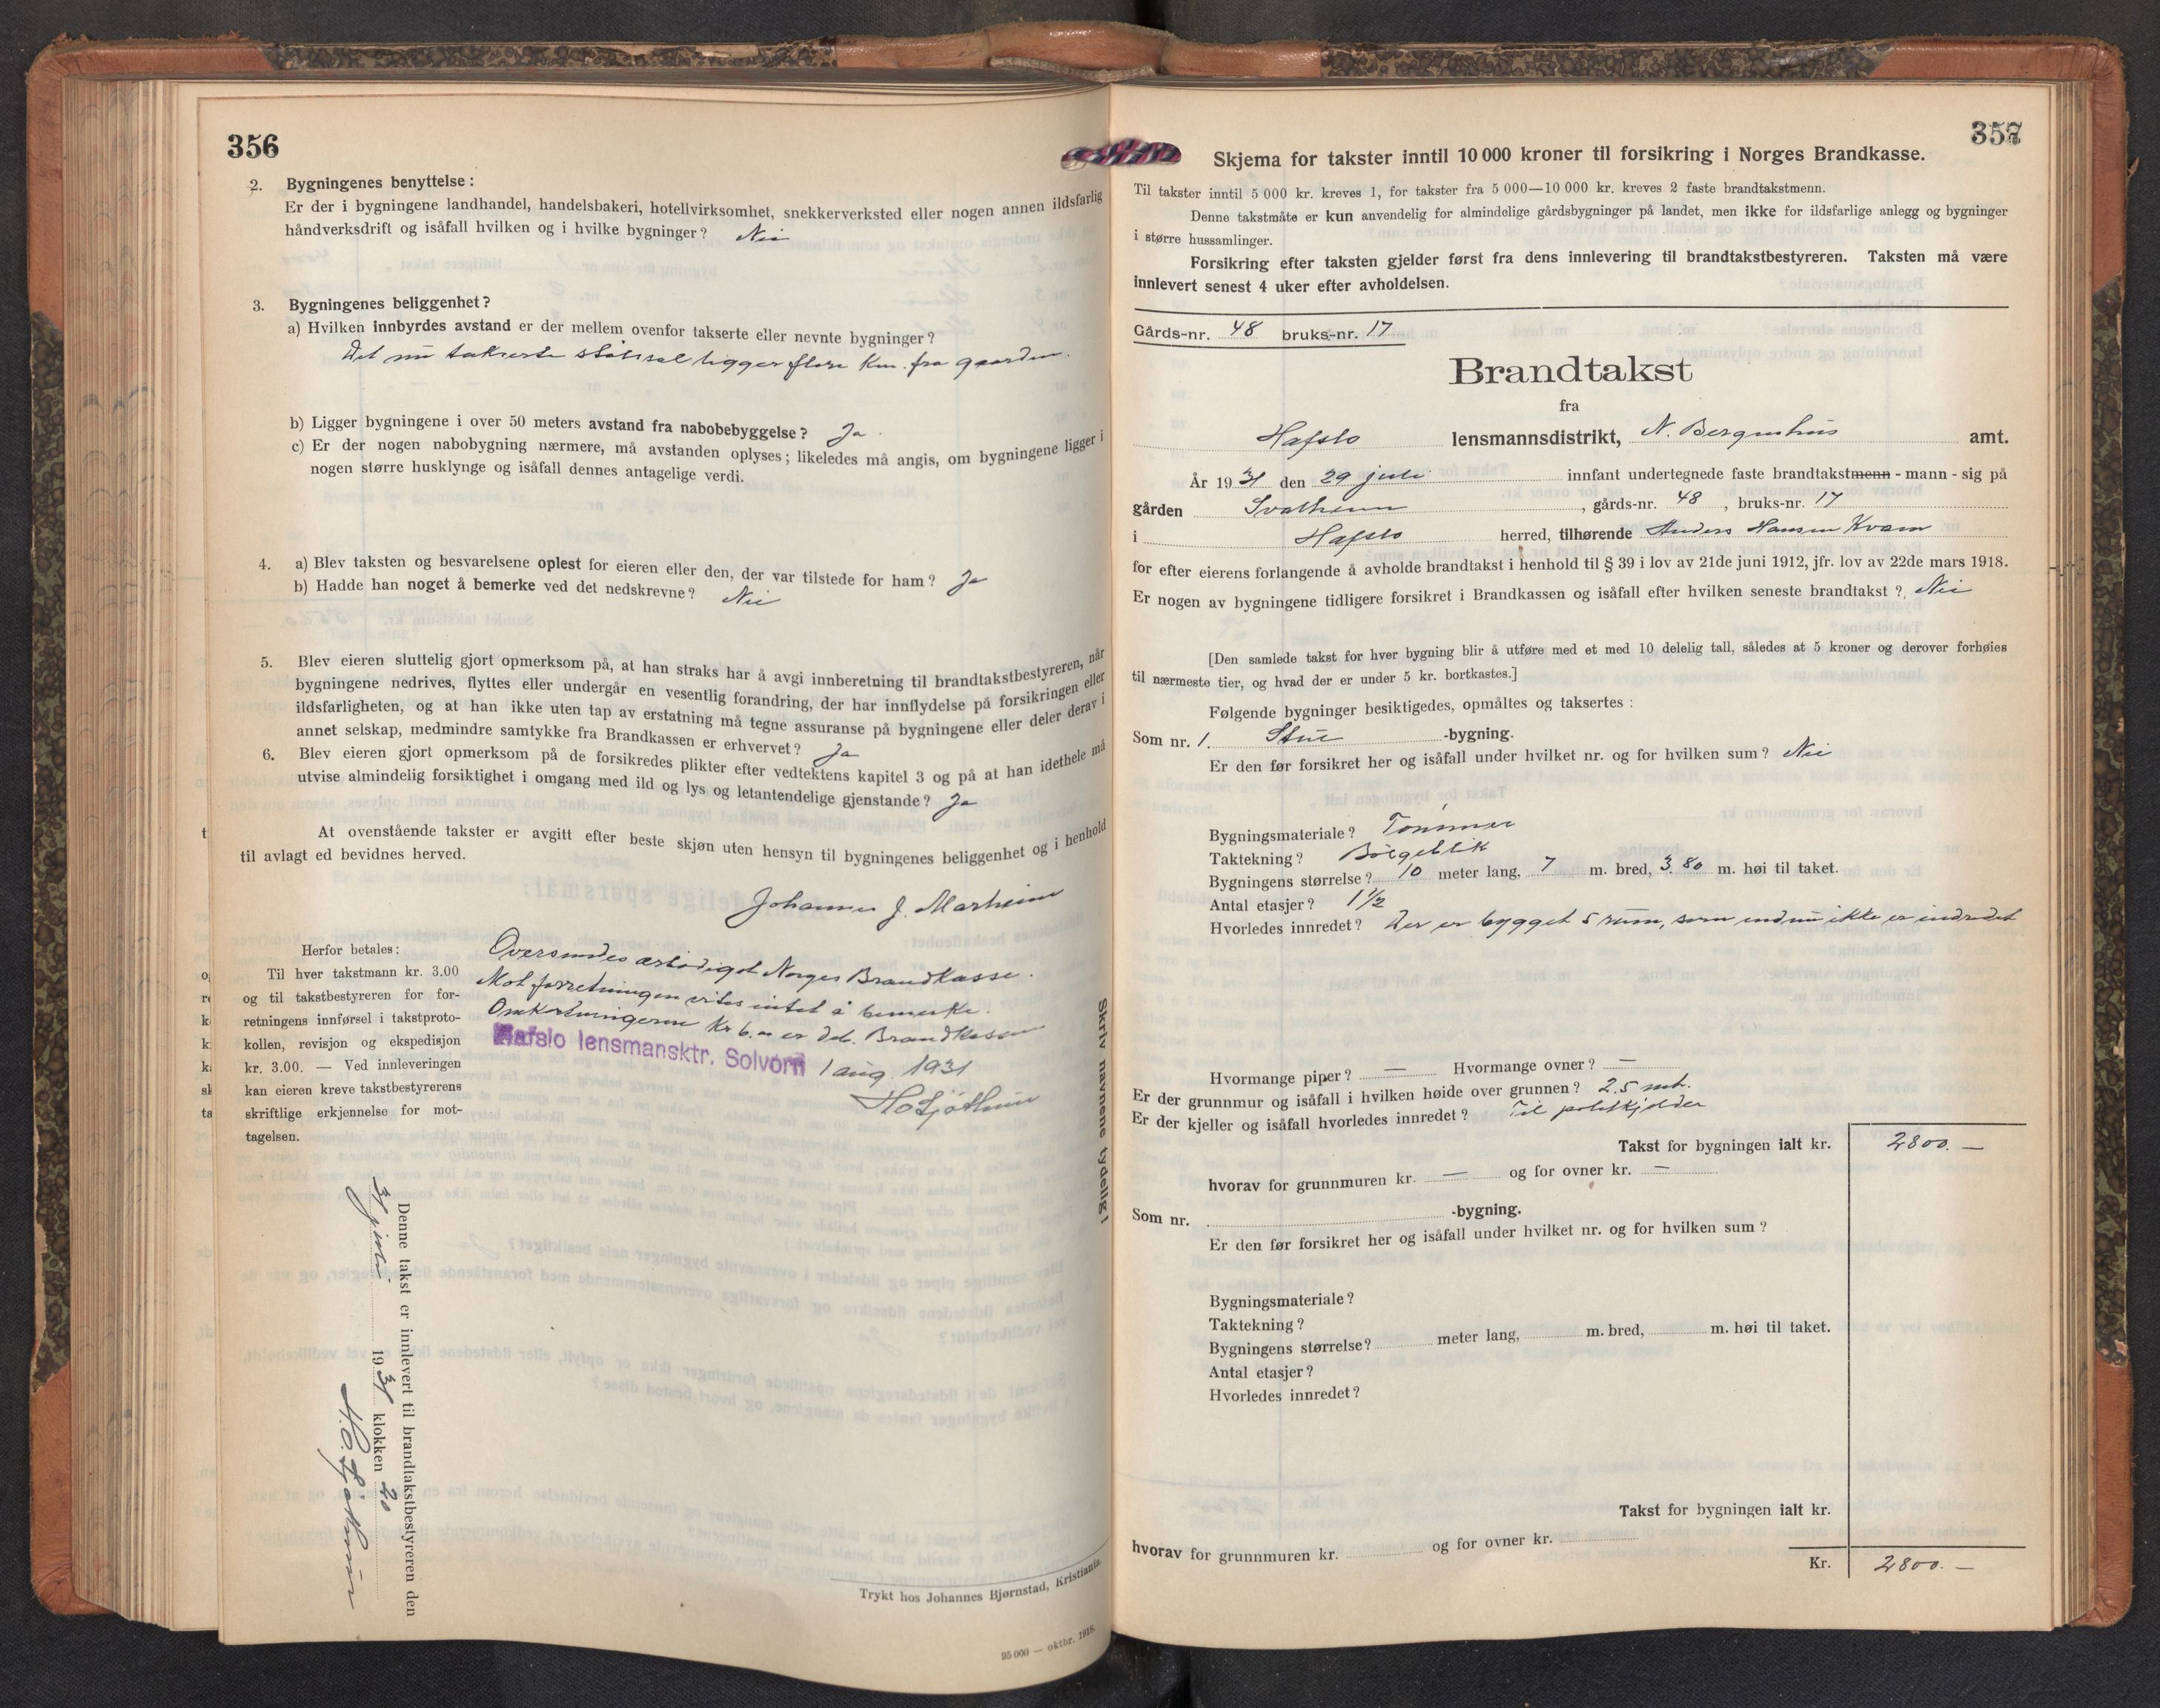 356
2. Bygningenes benyttelse:
Er der i bygningene landhandel, handelsbakeri, hotellvirksomhet, snekkerverksted eller nogen annen ildsfarlig
håndverksdrift og isåfall hvilken og i hvilke bygninger? Nei
3. Bygningenes beliggenhet?
a) Hvilken innbyrdes avstand er der mellem ovenfor takserte eller nevnte bygninger?
Det nu takserte stölssel ligger flere Km. fra gaarden.
b) Ligger bygningene i over 50 meters avstand fra nabobebyggelse? Ja.
c) Er der nogen nabobygning nærmere, må avstanden oplyses; likeledes må angis, om bygningene ligger i
nogen større husklynge og isåfall dennes antagelige verdi.
4. a) Blev taksten og besvarelsene oplest for eieren eller den, der var tilstede for ham? Ja
b) Hadde han noget å bemerke ved det nedskrevne? Nei
5. Blev eieren sluttelig gjort opmerksom på, at han straks har å avgi innberetning til brandtakstbestyreren, når
bygningene nedrives, flyttes eller undergår en vesentlig forandring, der har innflydelse på forsikringen eller
ildsfarligheten, og at han ikke uten tap av erstatning må tegne assuranse på bygningene eller deler derav i
annet selskap, medmindre samtykke fra Brandkassen er erhvervet? Ja
6. Blev eieren gjort opmerksom på de forsikredes plikter efter vedtektens kapitel 3 og på at han idethele må
utvise almindelig forsiktighet i omgang med ild og lys og letantendelige gjenstande? Ja
At ovenstående takster er avgitt efter beste skjøn uten hensyn til bygningenes beliggenhet og i henhold
til avlagt ed bevidnes herved.
Johannes J. Marheim
Herfor betales:
Til hver takstmann kr. 3.00
og til takstbestyreren for for-
retningens innførsel i takstproto-
kollen, revisjon og ekspedisjon
kr. 3.00. — Ved innleveringen
kan eieren kreve takstbestyrerens
skriftlige erkjennelse for mot-
tagelsen.
Oversendes ærbødigst Norges Brandkasse.
Mot forretningen vites intet å bemerke.
Omkostningerne Kr 6.00 er deb. Brandkassen
Hafslo lensmansktr. Solvorn 1 aug. 1931
Denne takst er innlevert til brandtakstbestyreren den
31 juli 1931 klokken 20
Skriv navnene tydelig!
Trykt hos Johannes Bjørnstad, Kristiania.
95 000 — oktbr. 1918.
357
Skjema for takster inntil 10 000 kroner til forsikring i Norges Brandkasse.
Til takster inntil 5 000 kr. kreves 1, for takster fra 5 000—10 000 kr. kreves 2 faste brandtakstmenn.
Denne takstmåte er kun anvendelig for almindelige gårdsbygninger på landet, men ikke for ildsfarlige anlegg og bygninger
i større hussamlinger.
Forsikring efter taksten gjelder først fra dens innlevering til brandtakstbestyreren. Taksten må være
innlevert senest 4 uker efter avholdelsen.
Gårds-nr. 48 bruks-nr. 17
Brandtakst
fra
Hafslo lensmannsdistrikt, N. Bergenhus amt.
År 1931 den 29 juli innfant undertegnede faste brandtakstmenn - mann - sig på
gården Svalheim, gårds-nr. 48, bruks-nr. 17
i Hafslo herred, tilhørende Anders Hansen Kvam
for efter eierens forlangende å avholde brandtakst i henhold til § 39 i lov av 21de juni 1912, jfr. lov av 22de mars 1918.
Er nogen av bygningene tidligere forsikret i Brandkassen og isåfall efter hvilken seneste brandtakst? Nei
[Den samlede takst for hver bygning blir å utføre med et med 10 delelig tall, således at 5 kroner og derover forhøies
til nærmeste tier, og hvad der er under 5 kr. bortkastes.]
Følgende bygninger besiktigedes, opmåltes og taksertes:
Som nr. 1. Stue -bygning.
Er den før forsikret her og isåfall under hvilket nr. og for hvilken sum? Nei
Bygningsmateriale? Tömmer
Taktekning? Bölgeblik
Bygningens størrelse? 10 meter lang, 7 m. bred, 3.80 m. høi til taket.
Antal etasjer? 1 1/2
Hvorledes innredet? Der er bygget 5 rum, som endnu ikke er indredet
Hvormange piper? — Hvormange ovner? —
Er der grunnmur og isåfall i hvilken høide over grunnen? 2.5 mtr.
Er der kjeller og isåfall hvorledes innredet? Til potetkjelder
Takst for bygningen ialt kr. 2800.—
hvorav for grunnmuren kr. — og for ovner kr. —
Som nr. -bygning.
Er den før forsikret her og isåfall under hvilket nr. og for hvilken sum?
Bygningsmateriale?
Taktekning?
Bygningens størrelse? meter lang, m. bred, m. høi til taket.
Antal etasjer?
Hvorledes innredet?
Takst for bygningen ialt kr.
hvorav for grunnmuren kr. og for ovner kr.
Kr. 2800.—